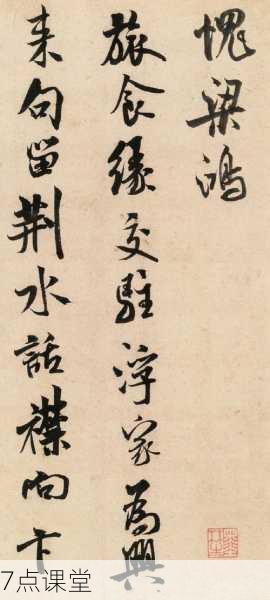 愧梁鴻
旅食緣交駐浮家為興
来句留荆水話襟向卞
7点课堂